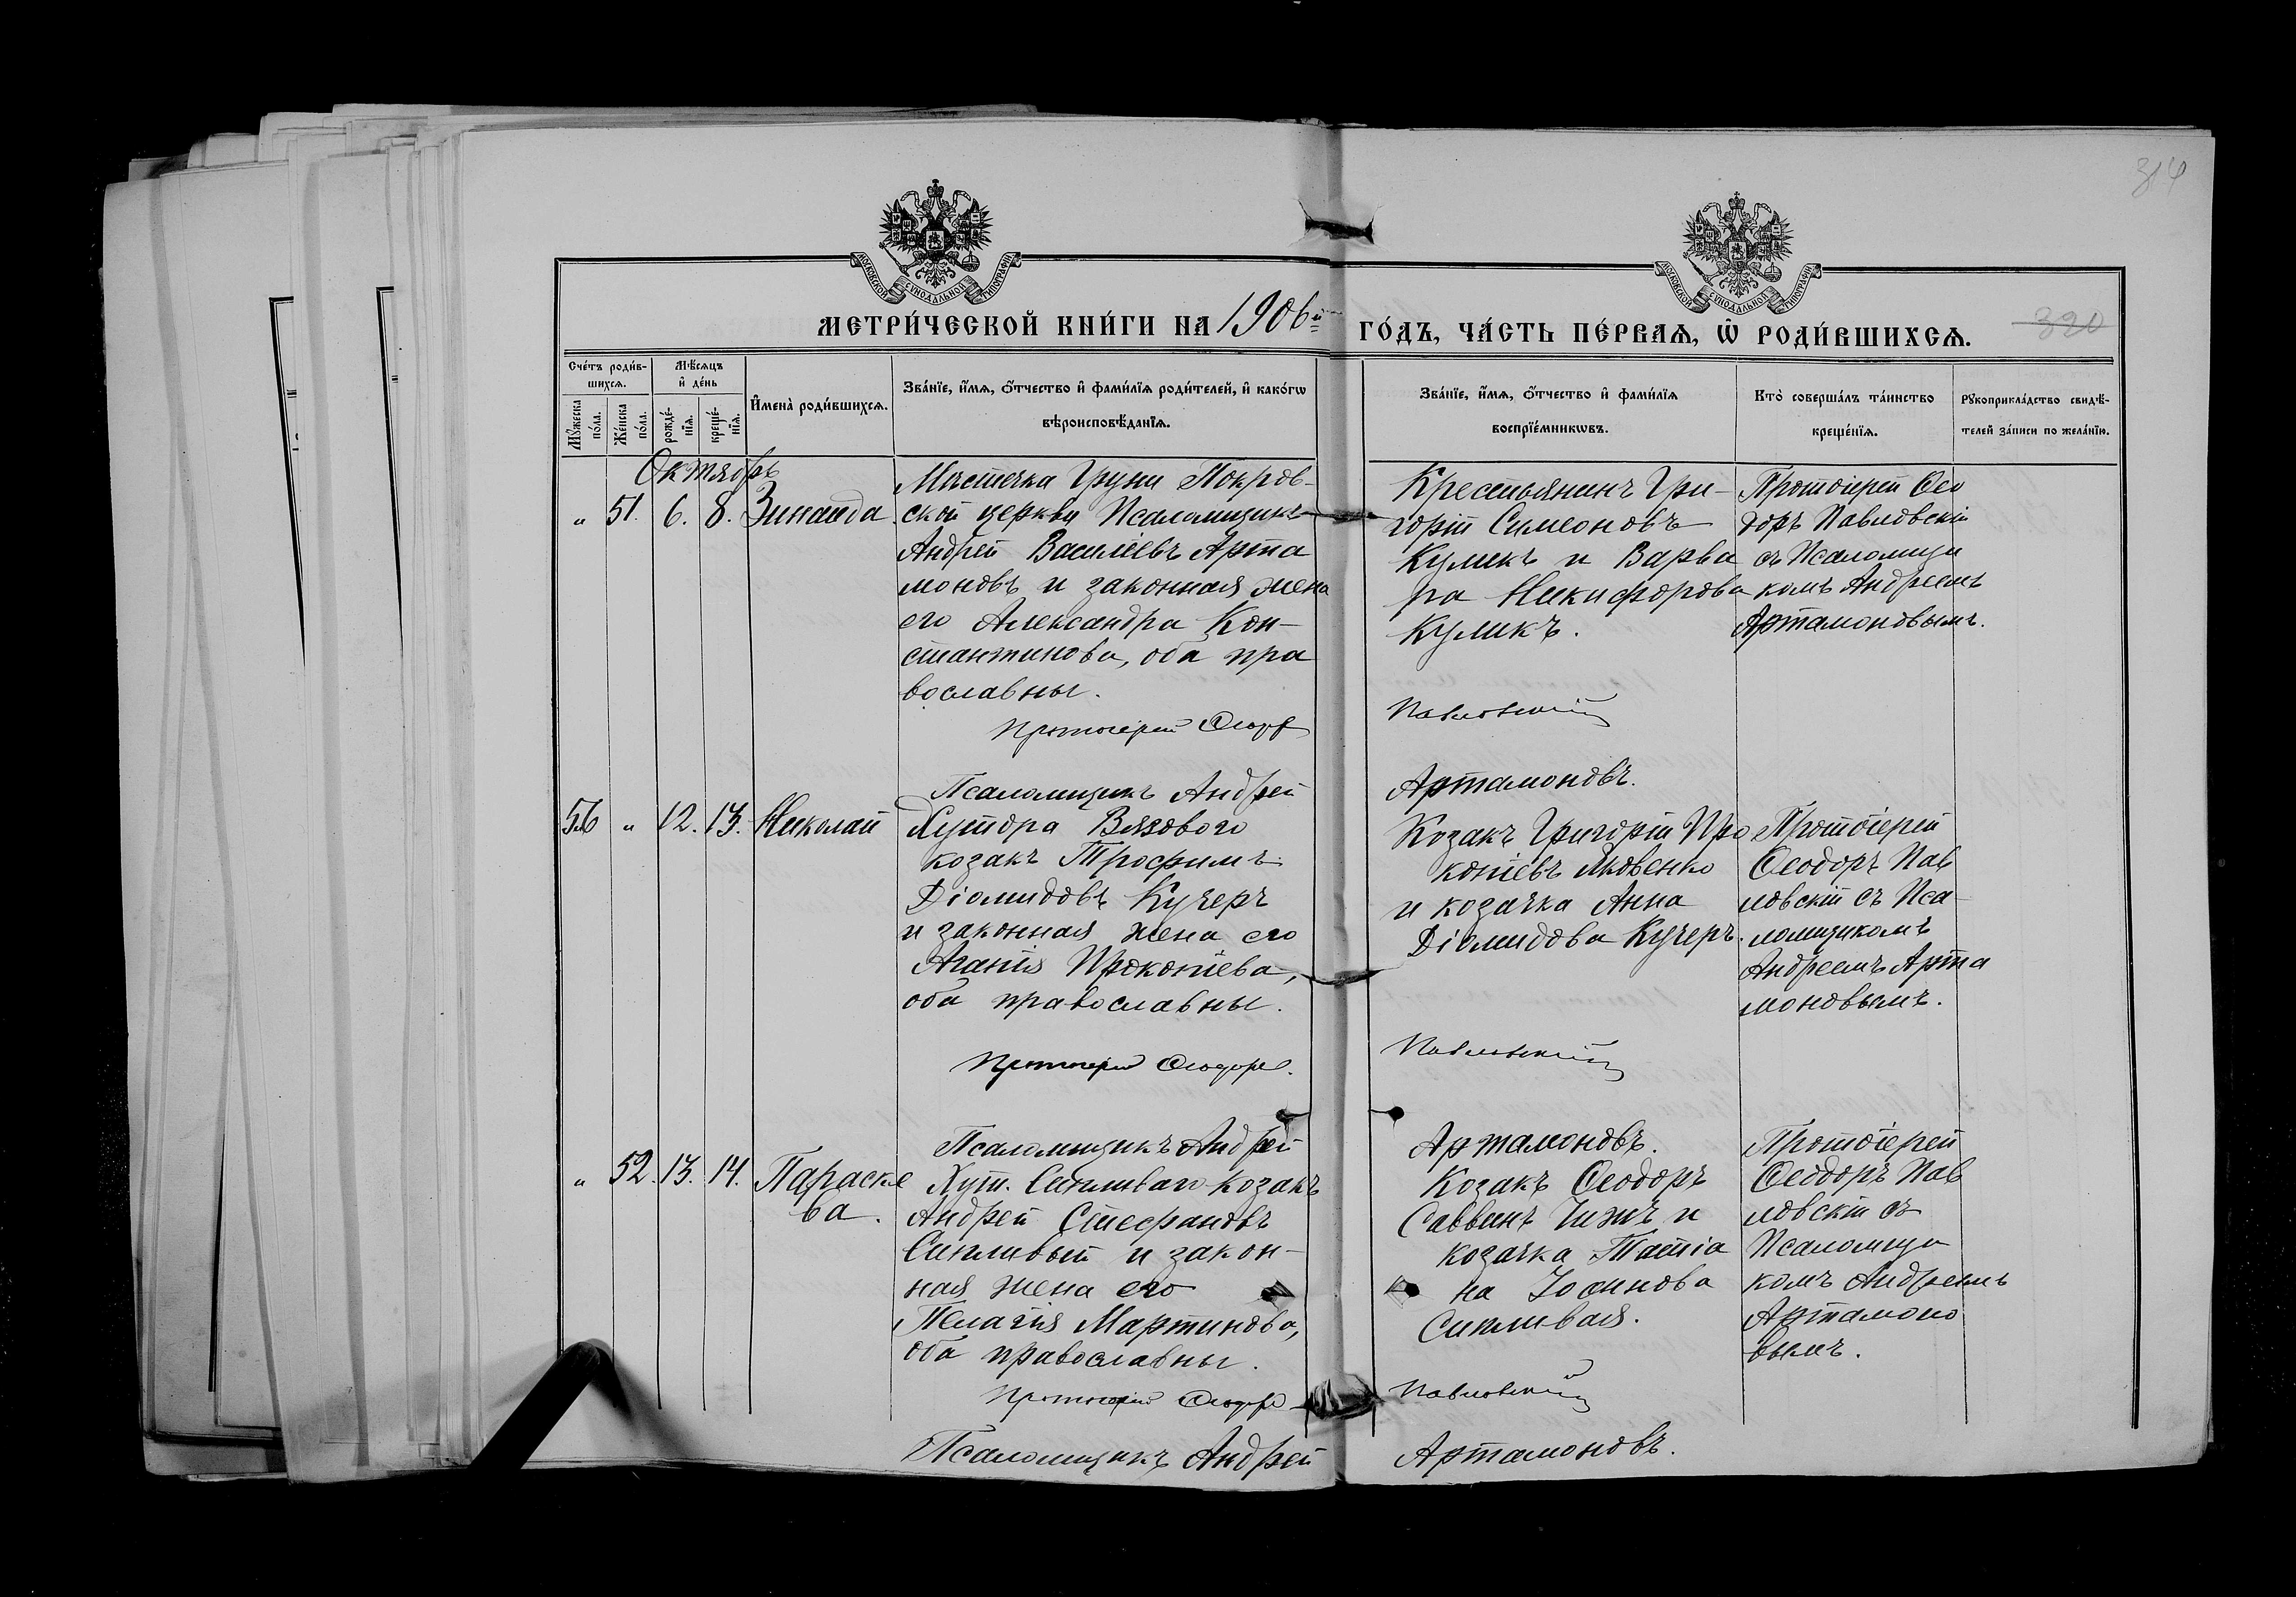 314
МОСКОВСКОЙ СУНОДАЛЬНОЙ ТИПОГРАФІИ
МОСКОВСКОЙ СУНОДАЛЬНОЙ ТИПОГРАФІИ
МЕТРИ́ЧЕСКОЙ КНИ́ГИ НА 1906й ГО́ДЪ, ЧА́СТЬ ПЕ́РВАѦ, Ѡ҆ РОДИ́ВШИХСѦ.
320
Сче́тъ роди́в-
шихсѧ.
Мꙋ́жеска по́ла.
Же́нска по́ла.
Мѣ́сѧцъ
и҆ де́нь
рожде́-
нїѧ.
креще́-
нїѧ.
И҆мена̀ роди́вшихсѧ.
Зва́нїе, и҆́мѧ, ѻ҆́тчество и҆ фами́лїѧ роди́телей, и҆ како́гѡ
вѣроисповѣ́данїѧ.
Зва́нїе, и҆́мѧ, ѻ҆́тчество и҆ фами́лїѧ
воспрїе́мникѡвъ.
Кто̀ соверша́лъ та́инство
креще́нїѧ.
Рꙋкоприкла́дство свидѣ́-
телей за́писи по жела́нїю.
Октябрь
" 51. 6. 8. Зинаида
Мѣстечка Груни Покров-
ской церкви Псаломщикъ
Андрей Василіевъ Арта
моновъ и законная жена
его Александра Кон-
стантинова, оба пра
вославны.
Крестьянинъ Гри-
горій Симеоновъ
Куликъ и Варва
ра Никифорова
Куликъ.
Протоіерей Ѳео
доръ Павловскій
съ Псаломщи
комъ Андреемъ
Артамоновымъ.
Протоіерей Ѳеодоръ Павловскій
Псаломщикъ Андрей Артамоновъ.
56 " 12. 13. Николай
Хутора Вязового
козакъ Трофимъ
Діомидовъ Кучеръ
и законная жена его
Агапія Прокопіева,
оба православны.
Козакъ Григорій Про
копіевъ Яковенко
и козачка Анна
Діомидова Кучеръ.
Протоіерей
Ѳеодоръ Пав
ловскій съ Пса-
ломщикомъ
Андреемъ Арта
моновымъ.
Протоіерей Ѳеодоръ Павловскій
Псаломщикъ Андрей Артамоновъ.
" 52. 13. 14. Параске
ва.
Хут. Сипливаго козакъ
Андрей Стефановъ
Сипливый и закон-
ная жена его
Пелагія Мартинова,
оба православны.
Козакъ Ѳеодоръ
Саввинъ Чижъ и
козачка Татіа
на Іосифова
Сипливая.
Протоіерей
Ѳеодоръ Пав
ловскій съ
Псаломщи
комъ Андреемъ
Артамоно
вымъ.
Протоіерей Ѳеодоръ Павловскій
Псаломщикъ Андрей Артамоновъ.